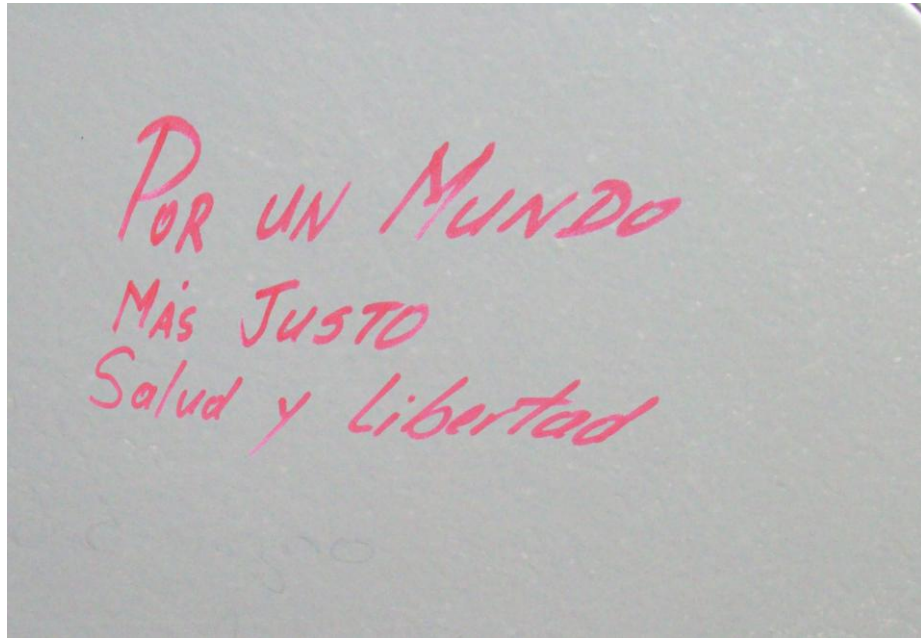 POR UN MUNDO
MÁS JUSTO
Salud y Libertad